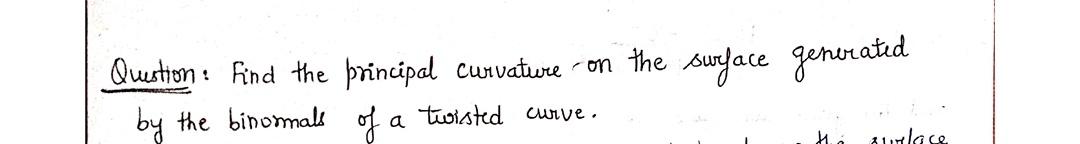 Question: Find the principal curvature on the surface generated
by the binormals of a twisted curve.
the surface